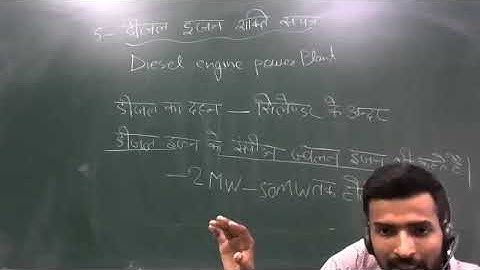 5- डीजल इंजन शक्ति संयंत्र
Diesel engine power Plant
डीजल का दहन — सिलेण्डर के अन्दर
डीजल इंजन को संपीडन ज्वलन इंजन भी कहते है।
— 2 MW – 50MW तक